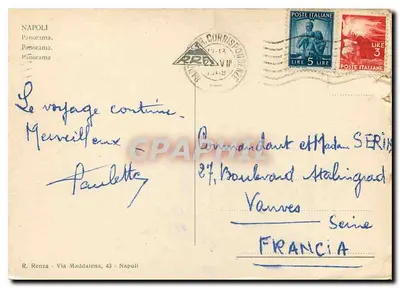 NAPOLI
Panorama.
Panorama.
Panorama
POSTE ITALIANE
LIRE 5 LIRE
LIRE
3
POSTE ITALIANE
Le voyage continue.
Merveilleux
Paulette
Commandant et Madam SERIN
27, Boulevard Stalingrad
Vanves
Seine
FRANCIA
R. Renza - Via Maddalena, 43 - Napoli